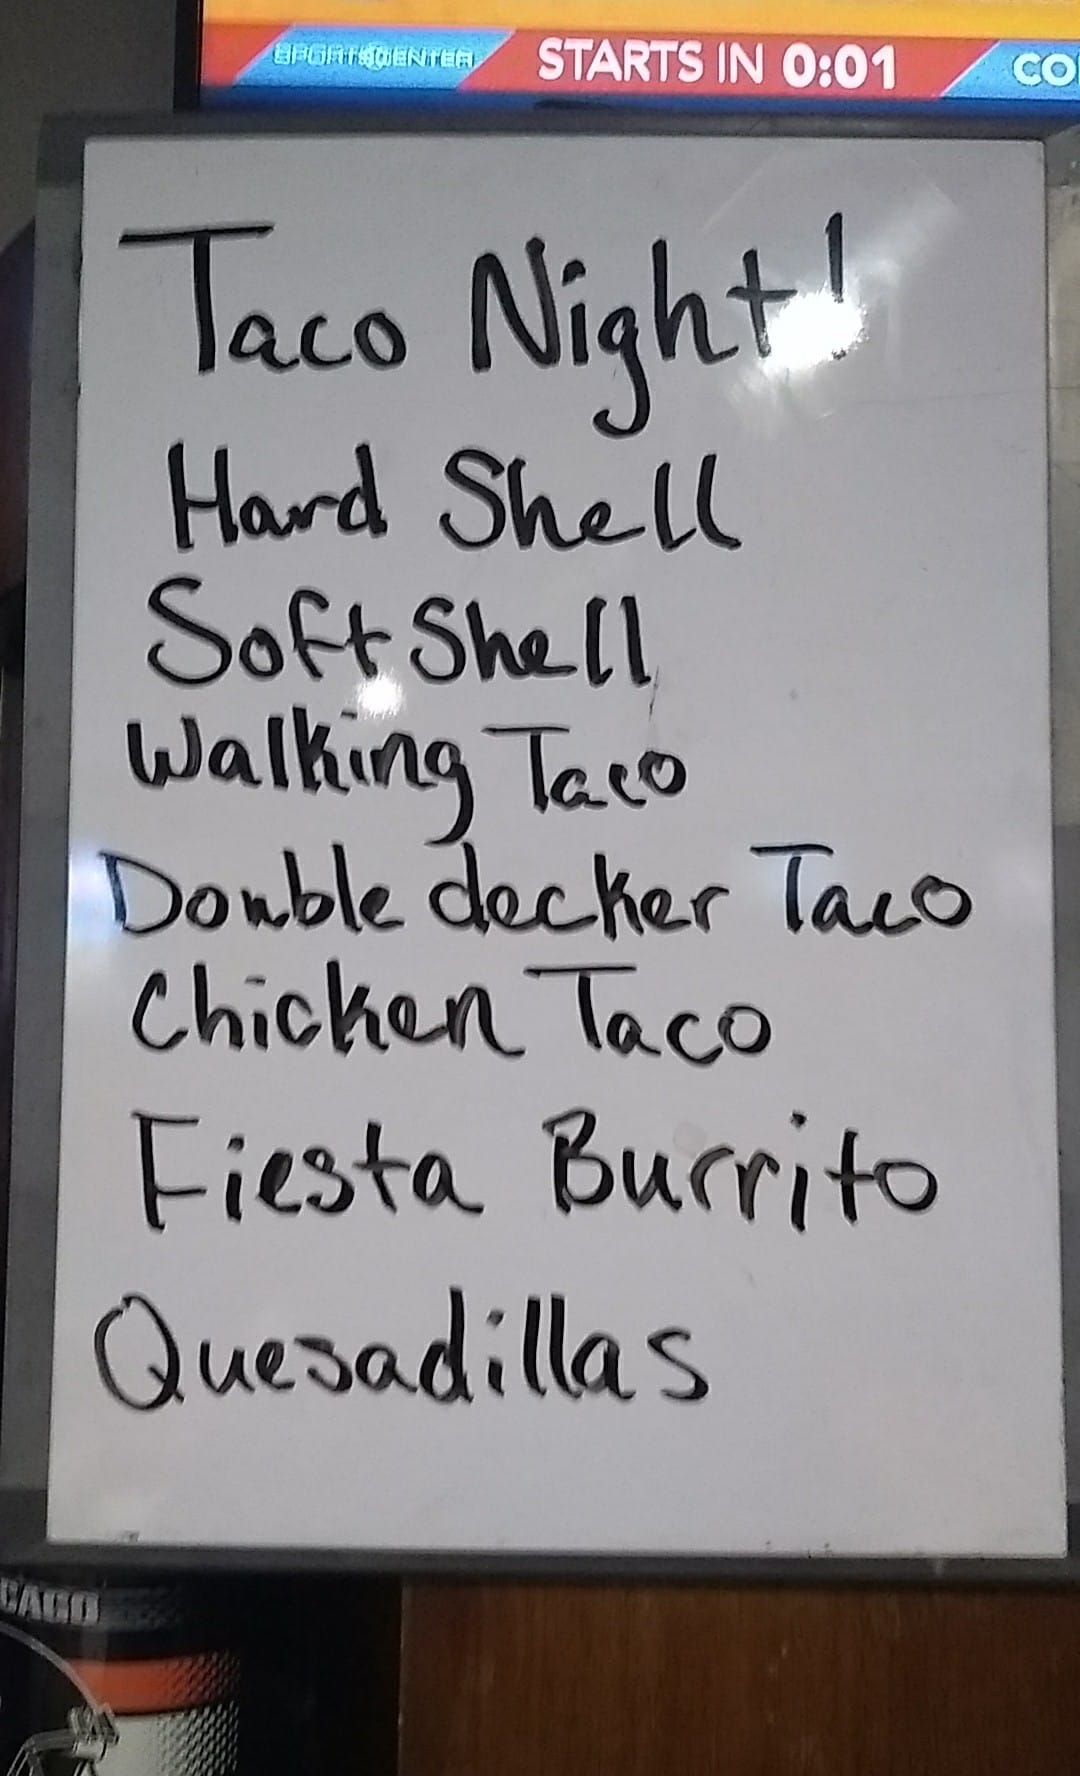 SPORTSCENTER STARTS IN 0:01 CO
Taco Night!
Hard Shell
Soft Shell
Walking Taco
Double decker Taco
Chicken Taco
Fiesta Burrito
Quesadillas
CAGO